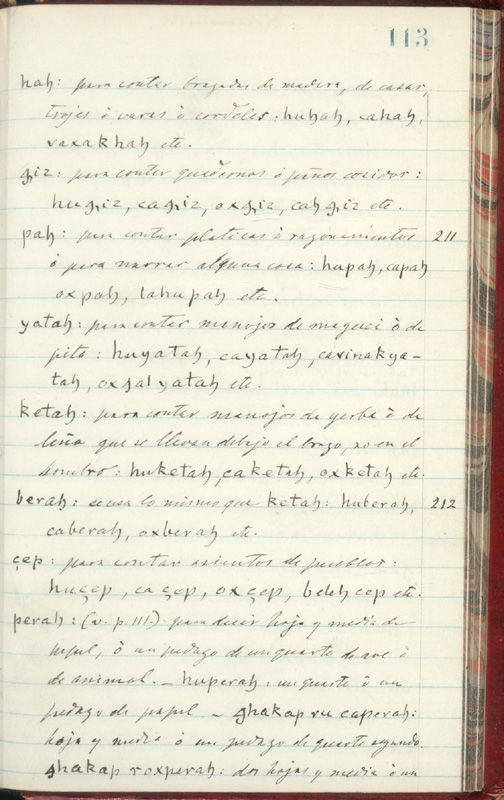 113
hah: para contar bragadas de madera, de casas,
trojes ò varas ò cordeles: huhah, cahah,
vaxakhah etc.
giz: para contar quadernos ò paños cosidos:
hugiz, cagiz, oxgiz, cahgiz etc.
pah: para contar platicas ò razonamientos 211
ò para narrar alguna cosa: hupah, capah
oxpah, lahupah etc.
yatah: para contar manojos de maguei ò de
pita: huyatah, cayatah, cavinakya-
tah, oxgalyatah etc.
ketah: para contar manojos de yerba ò de
leña que se llevan debajo el brazo, no en el
hombro: huketah, caketah, oxketah etc.
berah: se usa lo mismo que ketah: huberah, 212
caberah, oxberah etc.
çep: para contar asientos de pueblos:
huçep, caçep, oxçep, beleh cep etc.
perah: (v. p. 111.) para decir hoja y media de
papel, ò un pedazo de un quarto de ave ò
de animal. – huperah: un quarto ò un
pedazo de papel – ghakap ru caperah:
hoja y media ò un pedazo de quarto segundo.
ghakap roxperah: dos hojas y media ò un